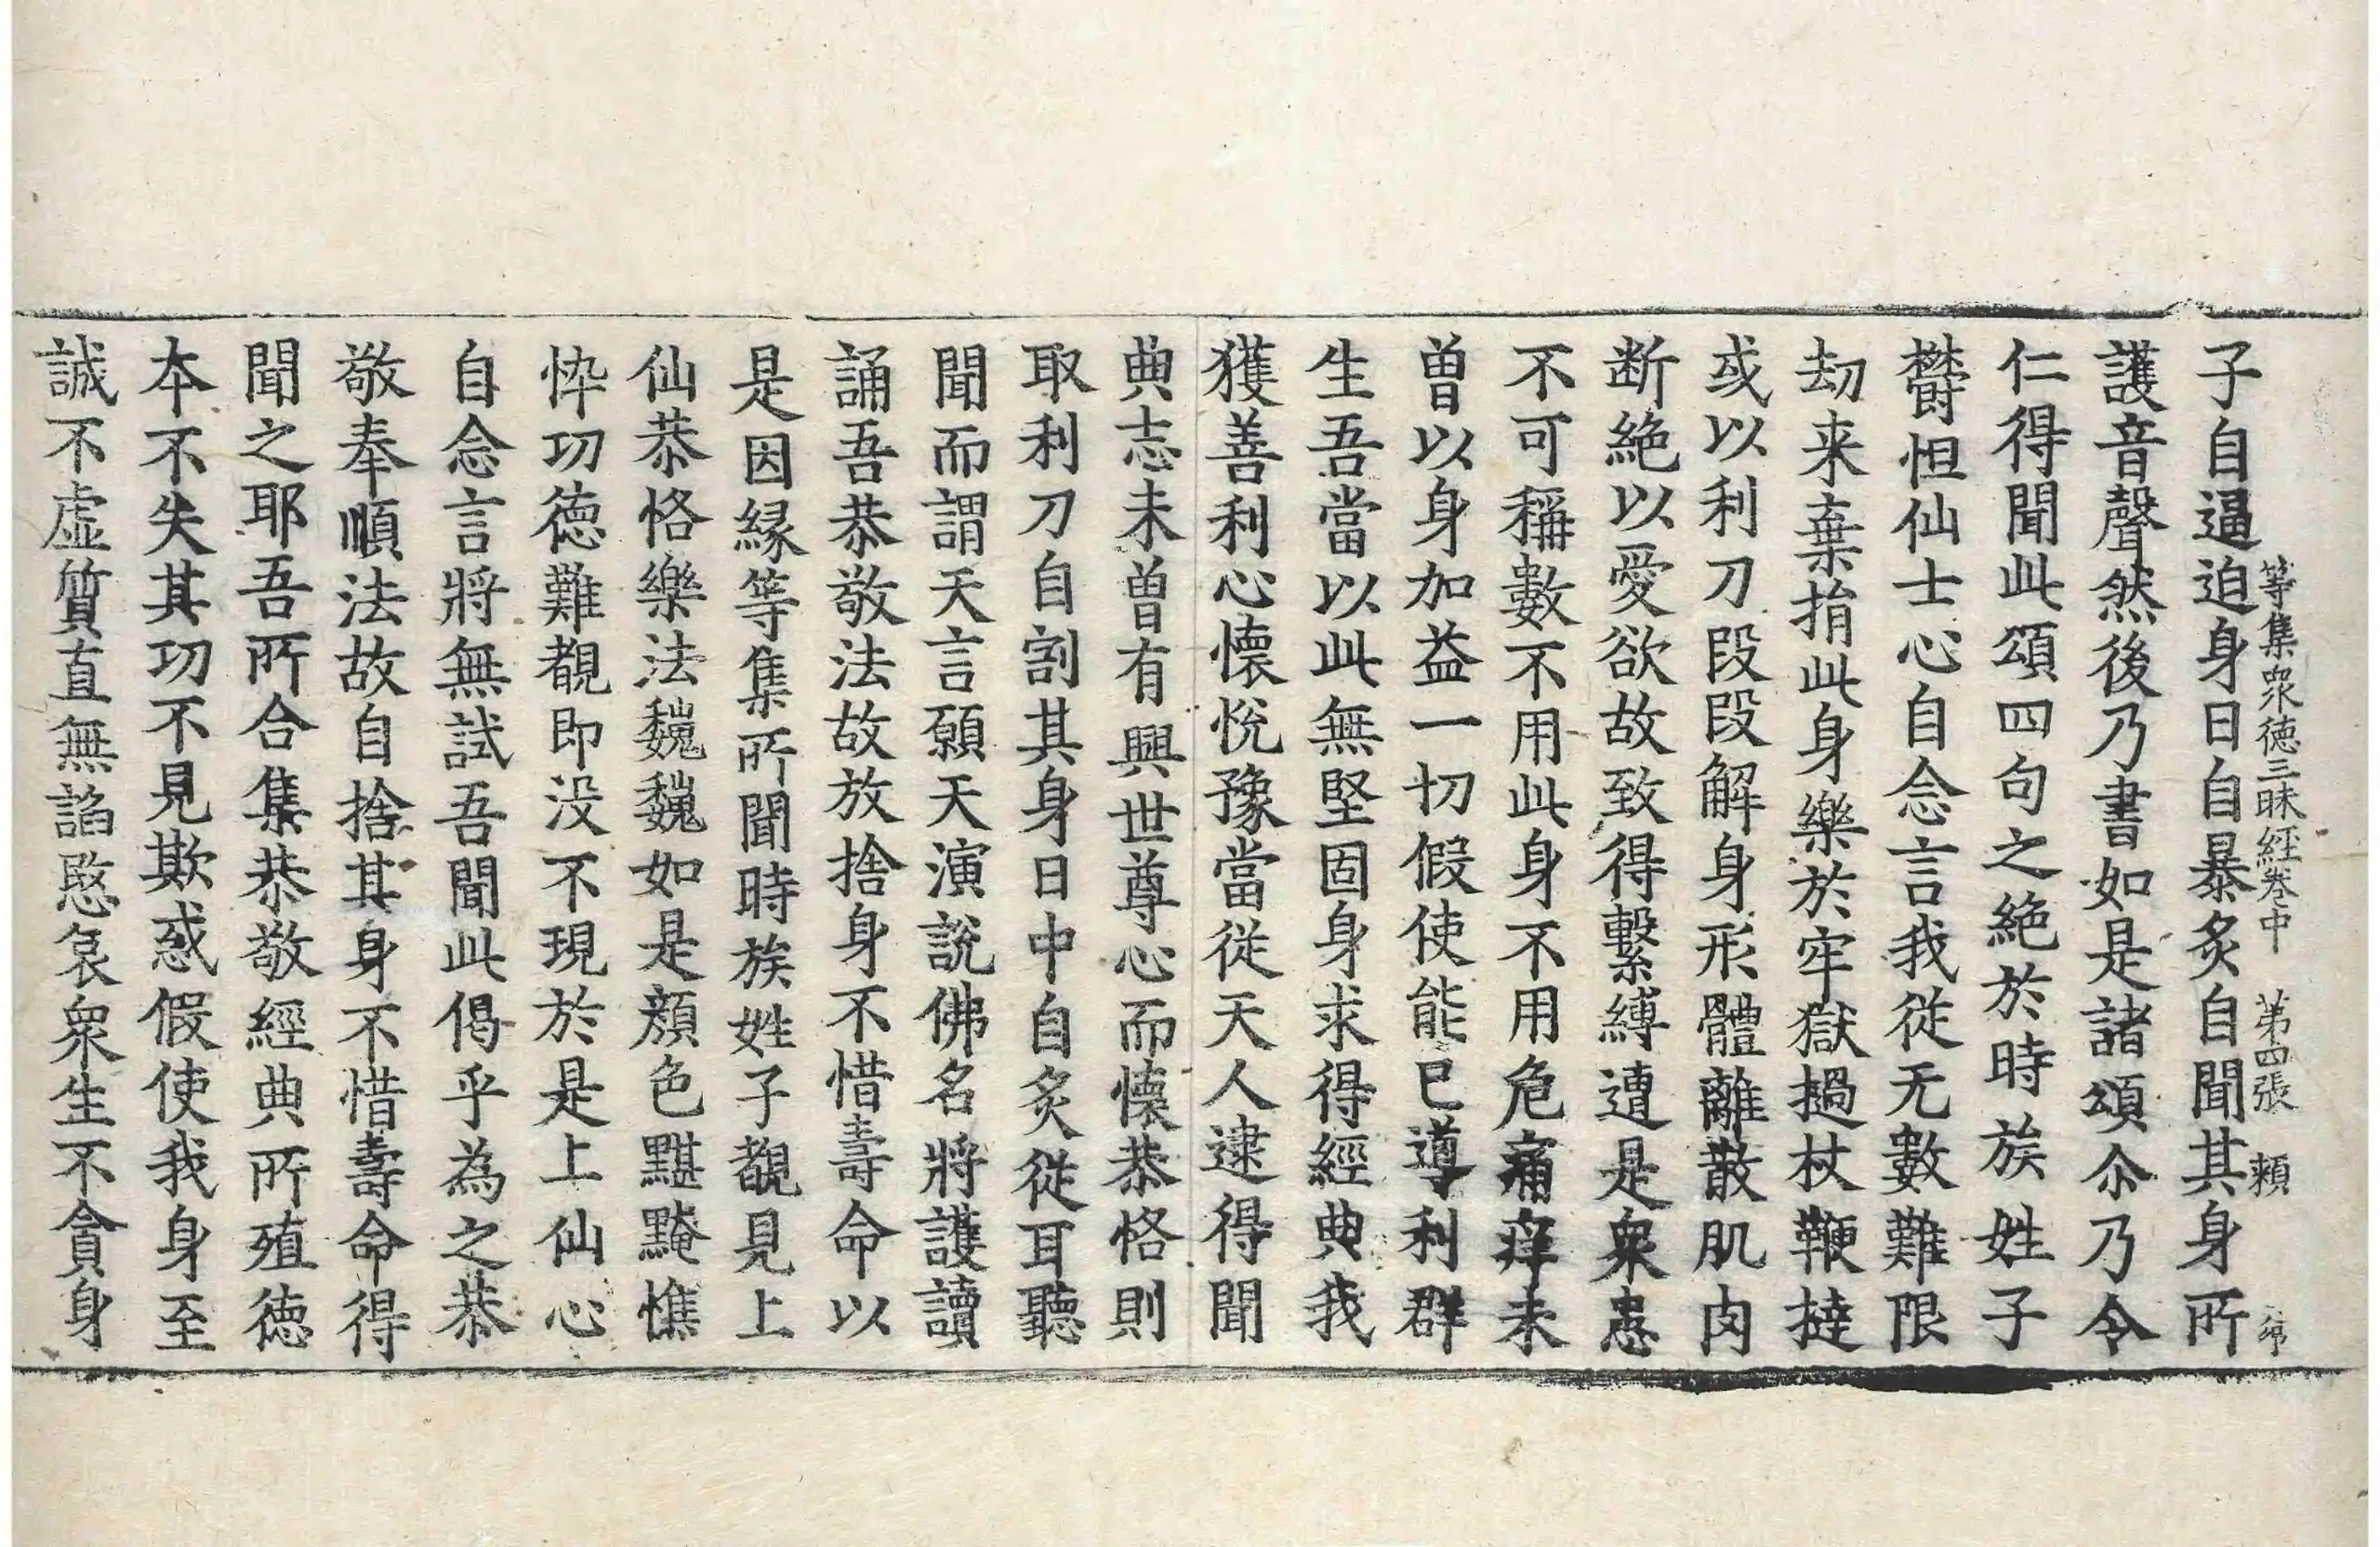 子自逼迫身日自暴炙自聞其身所
等集衆德三昧經卷中　第四張　頼
護音聲然後乃書如是諸頌尒乃令
仁得聞此頌四句之絶於時族姓子
欝怛仙士心自念言我從无數難限
劫来棄捐此身樂於牢獄撾杖鞭撻
或以利刀段段解身形體離散肌肉
断絶以愛欲故致得繫縛遭是衆患
不可稱數不用此身不用危痛痒未
曽以身加益一切假使能已導利群
生吾當以此無堅固身求得經典我
獲善利心懷悅豫當從天人逮得聞
典志未曽有興世尊心而懷恭恪則
取利刀自割其身日中自炙從耳聽
聞而謂天言願天演說佛名將護讀
誦吾恭敬法故放捨身不惜壽命以
是因縁等集所聞時族姓子覩見上
仙恭恪樂法巍巍如是顏色黮黤憔
忰功德難覩即没不現於是上仙心
自念言將無試吾聞此偈乎為之恭
敬奉順法故自捨其身不惜壽命得
聞之耶吾所合集恭敬經典所殖徳
本不失其功不見欺惑假使我身至
誠不虛質直無謟愍哀衆生不貪身